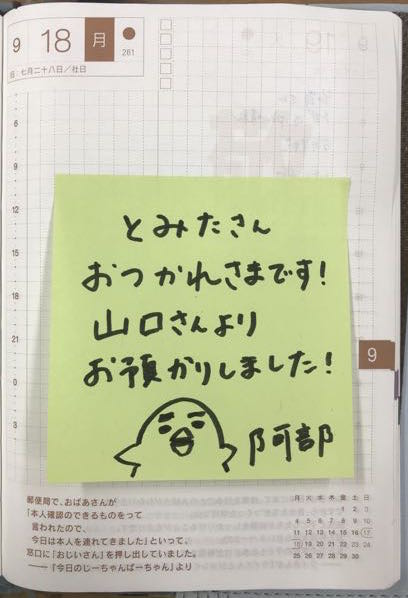 9 18 月
281
旧 七月二十八日／社日
6
9
12
15
18
21
0
3
とみたさん
おつかれさまです!
山口さんより
お預かりしました!
阿部
9
郵便局で、おばあさんが
「本人確認のできるものをって
言われたので、
今日は本人を連れてきました」といって、
窓口に「おじいさん」を押し出していました。
──『今日のじーちゃんばーちゃん』より
月 火 水 木 金 土 日
1 2 3
4 5 6 7 8 9 10
11 12 13 14 15 16 17
18 19 20 21 22 23 24
25 26 27 28 29 30